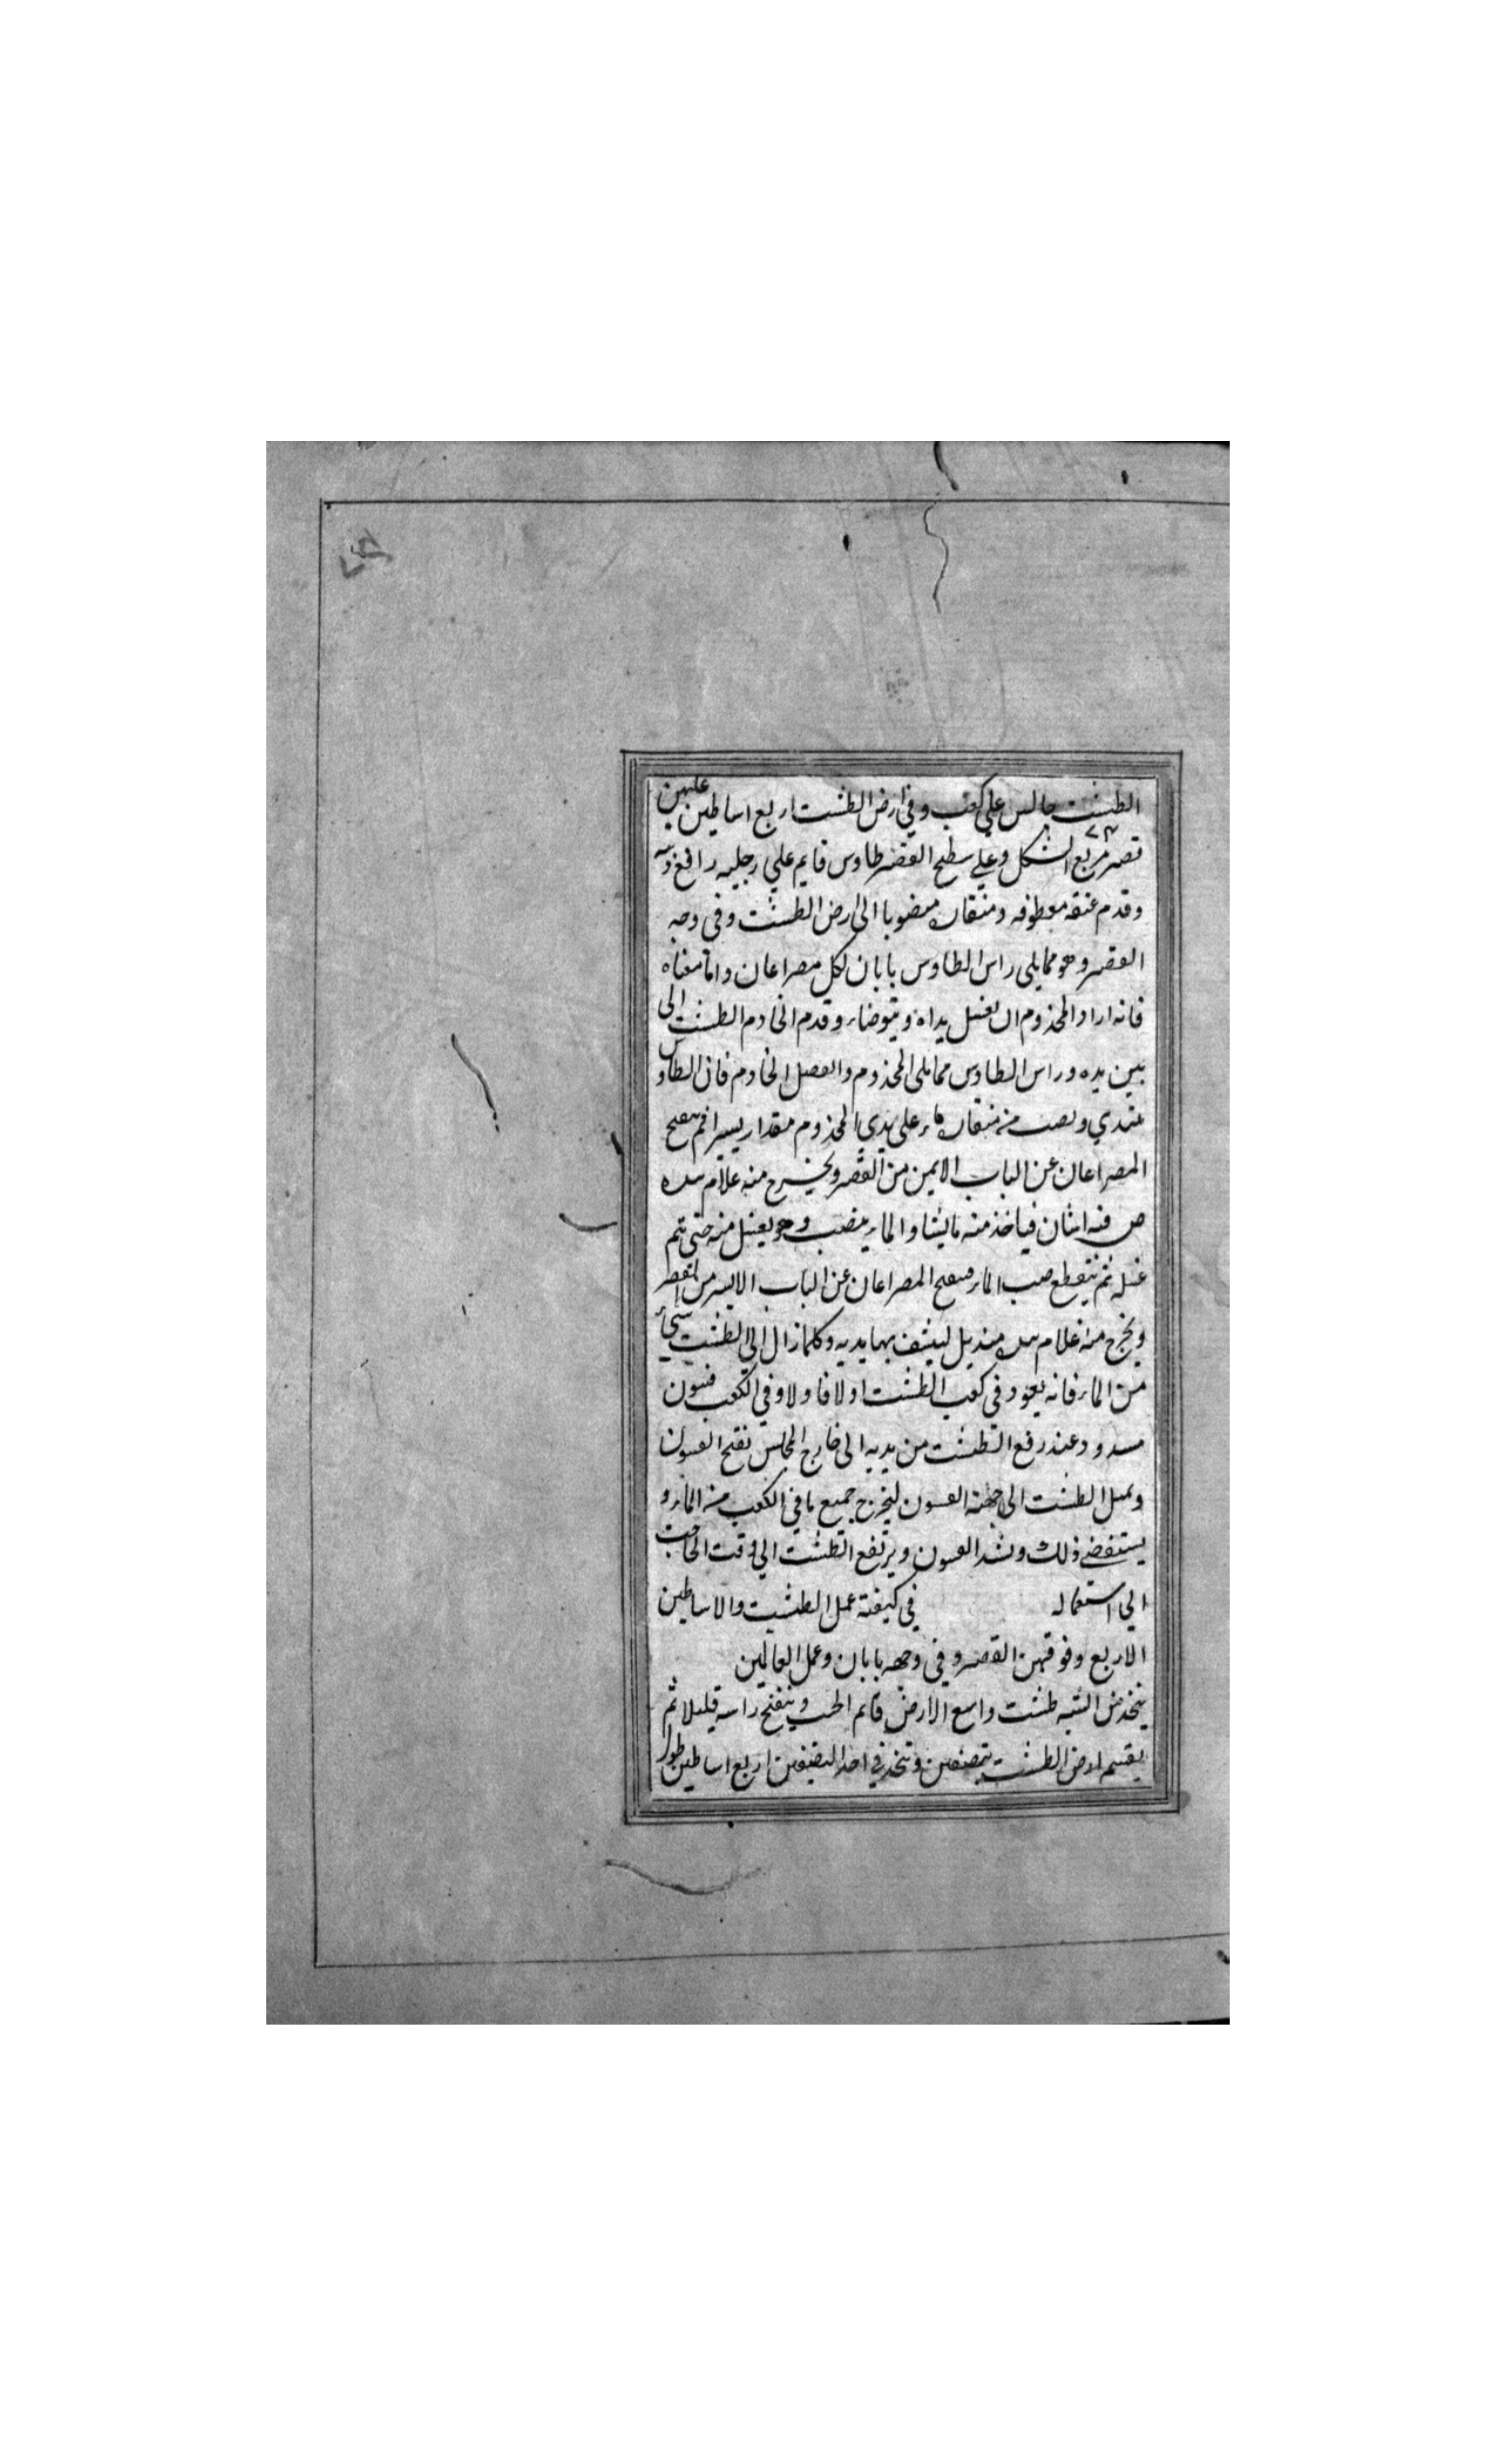 الطشت جالس علي كعب وفي ارض الطشت اربع اساطين عليهن
قصر مربع الشكل وعلي سطح القصر طاوس قايم علي رجليه رافع
وقدم عنقه معطوفه ومنقاره الى ارض الطشت وفي وجه
القصر وهو ممايلي راس الطاوس بابان لكل مصراعان واما معناه
فانه اراد المخذوم ان يغسل يداه ويتوضاء وقدم الخادم الطشت الى
بين يده وراس الطاوس ممايلى المخذوم والفصل الخادم فان الطاوس
يبتدي ويصب من منقاره ماء على يدي المخذوم مقدار يسيرا ثم يفتح
المصراعان عن الباب الايمن من القصر ويخرج منه غلام بيده
فيه اشنان فياخذ منه مايشا والماء ينصب وهو يغسل منه حتى يتم
غسله ثم ينقطع صب الماء فيفتح المصراعان عن الباب الايسر من القصر
ويخرج منه غلام بيده منديل لينشف بها يديه وكلما نزال الى الطشت شيء
من الماء فانه يعود في كعب الطشت اولا فاولا وفي الكعب فيون
مسدود وعند رفع الطشت من يديه الى خارج المجلس يفتح الفيون
ويميل الطشت الى جهته الفيون ليخرج جميع ما في الكعب من الماء و
يستنفضي ذلك ويشد الفيون ويرتفع الطشت الي وقت الحاجت
الي استعماله في كيفته عمل الطشت والاساطين
الاربع وفوقهن القصر وفي وجهه بابان وعمل
يتخذ من الشبه طشت واسع الارض قايم ويتفتح راسه قليلا ثم
يقسم ارض الطشت بنصفين ويتخذ في احد النصفين اربع اساطين طول